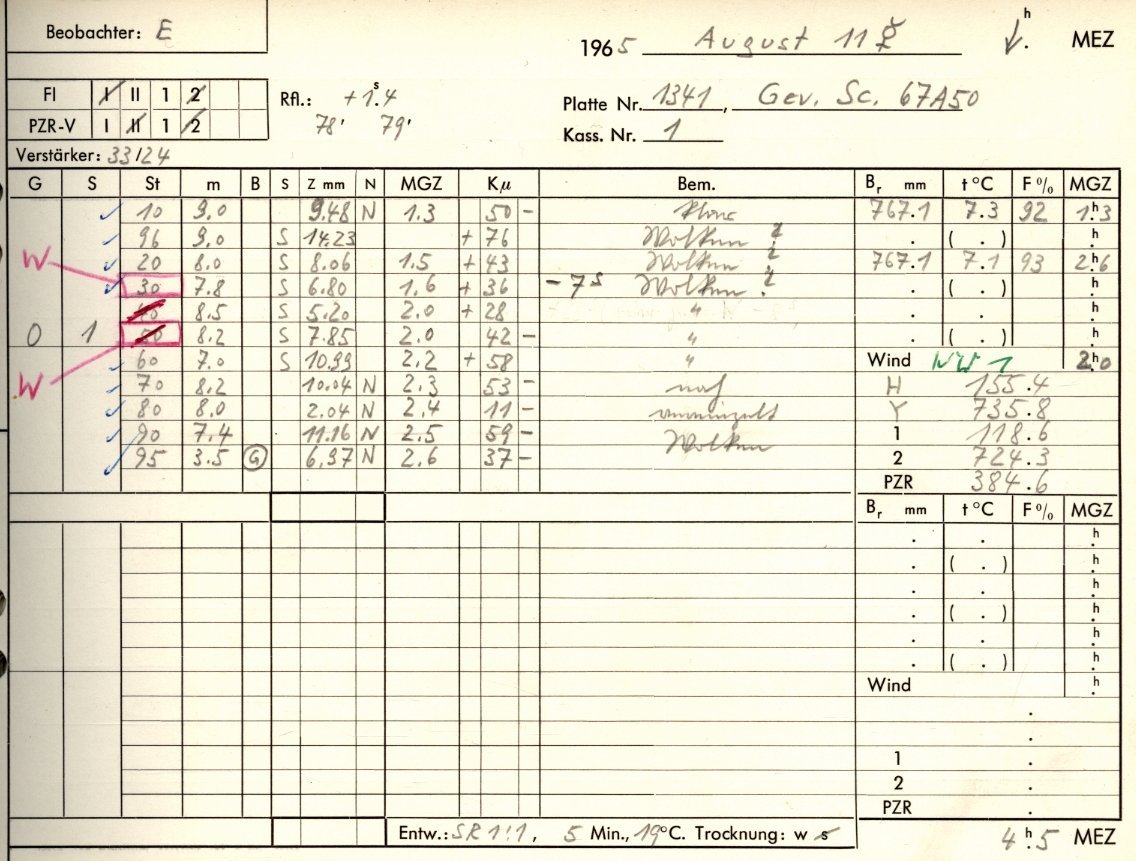 Beobachter: E
1965 August 11 ☿ h . MEZ
FI I II 1 2
PZR-V I II 1 2
Rfl.: +1ˢ.4
78' 79'
Platte Nr. 1341, Gev. Sc. 67A50
Kass. Nr. 1
Verstärker: 33/24
G S St m B S Z mm N MGZ Kµ Bem. Bᵣ mm t °C F % MGZ
10 9.0 9.48 N 1.3 50 - 767.1 7.3 92 1ʰ.3
96 9.0 S 14.23 + 76 Wolken ? . ( . ) ʰ.
20 8.0 S 8.06 1.5 + 43 Wolken ? 767.1 7.1 93 2ʰ.6
W 30 7.8 S 6.80 1.6 + 36 -7ˢ Wolken ? . ( . ) ʰ.
40 8.5 S 5.20 2.0 + 28 " . . ʰ.
0 1 50 8.2 S 7.85 2.0 42 - " . ( . ) ʰ.
W 60 7.0 S 10.99 2.2 + 58 " Wind NW 1 2ʰ.0
70 8.2 10.04 N 2.3 53 - noch H 155.4
80 8.0 2.04 N 2.4 11 - vereinzelt Y 735.8
90 7.4 11.16 N 2.5 59 - Wolken 1 118.6
95 3.5 G 6.97 N 2.6 37 - 2 724.3
PZR 384.6
Bᵣ mm t °C F % MGZ
. . ʰ.
. ( . ) ʰ.
. . ʰ.
. ( . ) ʰ.
. . ʰ.
. ( . ) ʰ.
Wind ʰ.
.
.
1 .
2 .
PZR .
Entw.: SR 1:1, 5 Min., 19°C. Trocknung: w s 4ʰ.5 MEZ